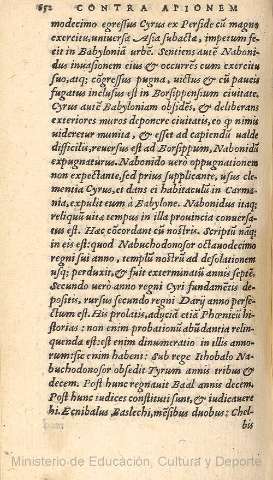 652 CONTRA APIONEM
modecimo egressus Cyrus ex Perside cū magno
exercitu, uniuersa Asia subacta, impetum fe-
cit in Babyloniā urbē. Sentiens autē Naboni-
dus inuasionem eius & occurēs cum exercitu
suo, atq; cōgressus pugna, uictus & cū paucis
fugatus inclusus est in Borsippensium ciuitate.
Cyrus autē Babyloniam obsidēs, & deliberans
exteriores muros deponere ciuitatis, eo q̃ nimis
uideretur munita, & esset ad capiendū ualde
difficilis, reuersus est ad Borsippum, Nabonidū
expugnaturus. Nabonido uerò oppugnationem
non expectante, sed prius supplicante, usus cle-
mentia Cyrus, et dans ei habitaculū in Carma-
nia, expulit eum à Babylone. Nabonidus itaq;
reliquū uitæ tempus in illa prouincia conuersa-
tus est. Hæc cōcordant cū nostris. Scriptū nāq;
in eis est: quod Nabuchodonosor octauodecimo
regni sui anno, templū nostrū ad desolationem
usq; perduxit, & fuit exterminatū annis septē.
Secundo uerò anno regni Cyri fundamētis de-
positis, rursus secundo regni Darij anno perfe-
ctum est. His prolatis, adijciā etiā Phœnicū hi-
storias: non enim probationū abūdantia relin-
quenda est: est enim dinumeratio in illis anno-
rum: sic enim habent: Sub rege Ithobalo Na-
buchodonosor obsedit Tyrum annis tribus &
decem. Post hunc regnauit Baal annis decem.
Post hunc iudices constituti sunt, & iudicauere
hi. Ecnibalus Baslechi, mēsibus duobus: Chel-
bis
Ministerio de Educación, Cultura y Deporte